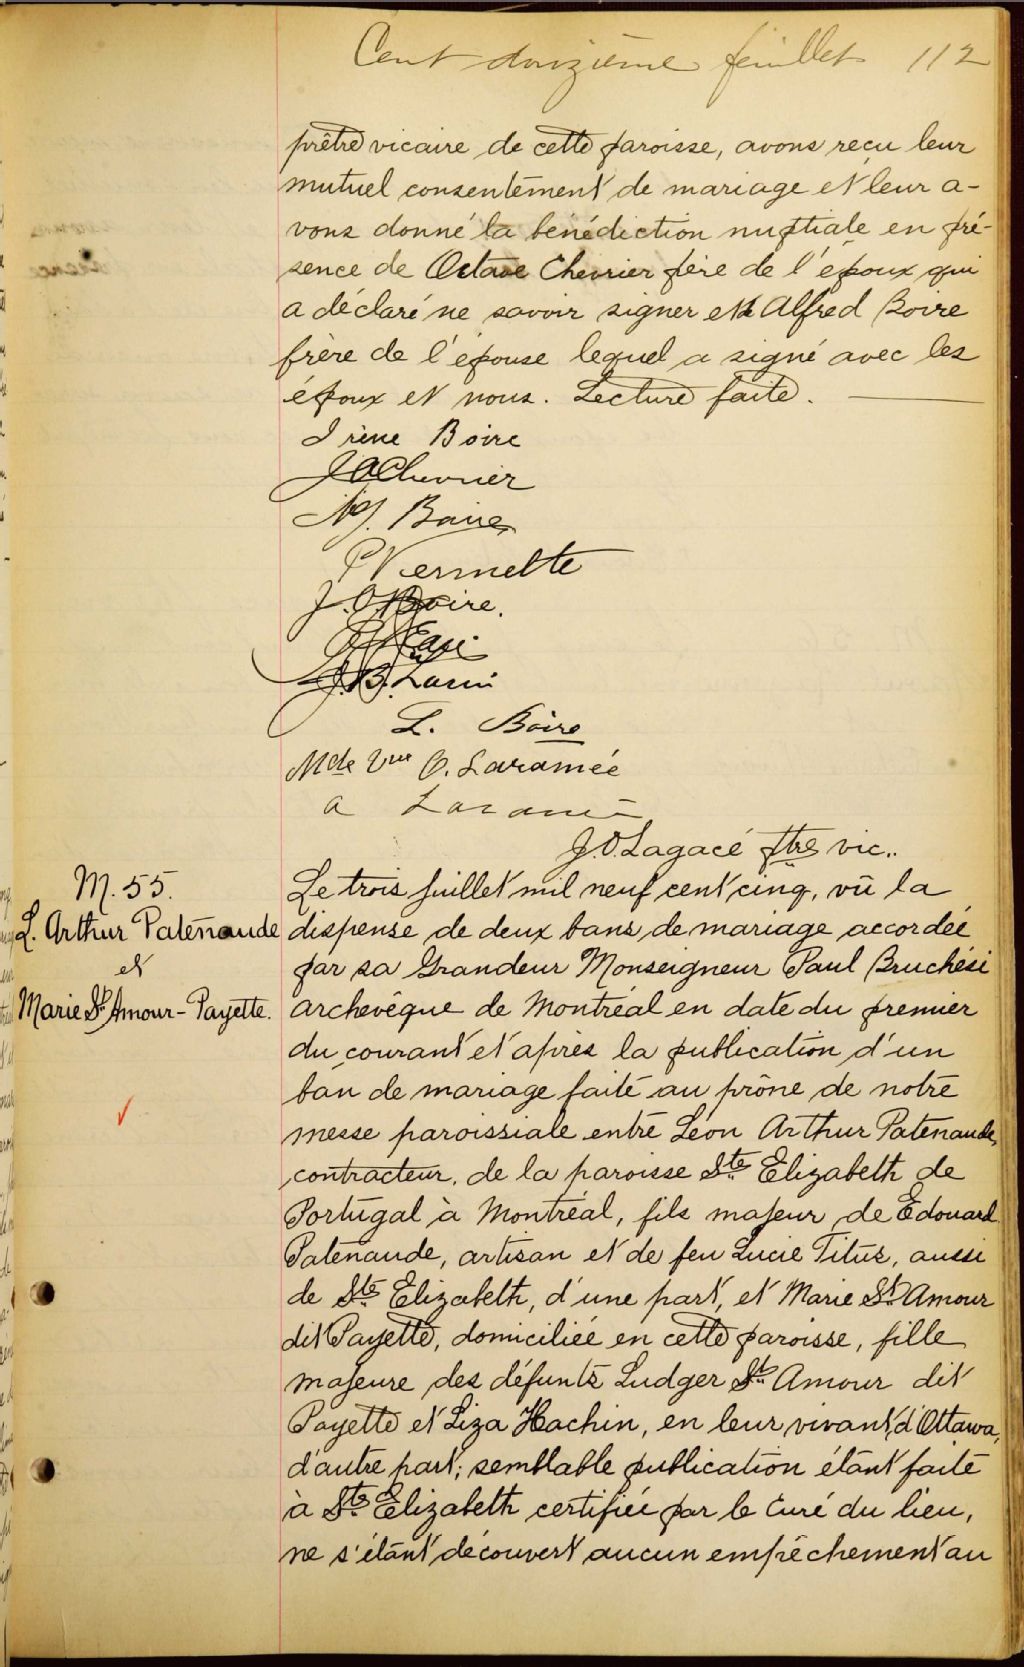 Cent douzième feuillet 112
prêtre vicaire de cette paroisse, avons reçu leur
mutuel consentement de mariage et leur a-
vons donné la bénédiction nuptiale en pré-
sence de Octave Chevrier père de l'époux qui
a déclaré ne savoir signer et Alfred Boire
frère de l'épouse lequel a signé avec les
époux et nous. Lecture faite.
Irène Boire
J A Chevrier
Boire
P Vermette
J. O Boire.
J. B.
L. Boire
Mde Vve O. Laramée
a Laramée
J. O Lagacé ptre vic..
M. 55.
L. Arthur Patenaude
et
Marie St Amour-Payette.
Le trois juillet mil neuf cent cinq, vu la
dispense de deux bans de mariage accordée
par sa Grandeur Monseigneur Paul Bruchési
archevêque de Montréal en date du premier
du courant et après la publication d'un
ban de mariage faite au prône de notre
messe paroissiale entre Léon Arthur Patenaude,
contracteur, de la paroisse Ste Elizabeth de
Portugal à Montréal, fils majeur de Edouard
Patenaude, artisan et de feu Lucie Titus, aussi
de Ste Elizabeth, d'une part, et Marie St Amour
dit Payette, domiciliée en cette paroisse, fille
majeure des défunts Ludger St Amour dit
Payette et Liza Hachin, en leur vivant d'Ottawa,
d'autre part; semblable publication étant faite
à Ste Elizabeth certifiée par le Curé du lieu,
ne s'étant découvert aucun empêchement au